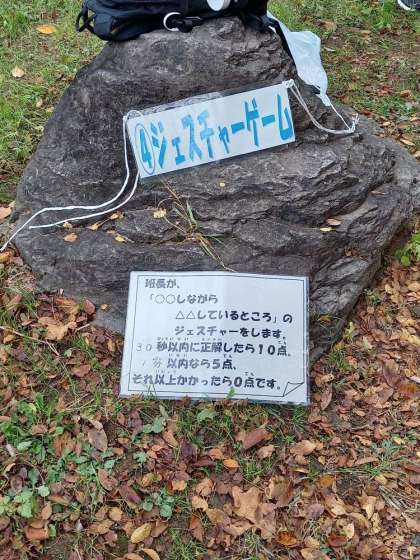 ④ジェスチャーゲーム
班長が、
「○○しながら
△△しているところ」の
ジェスチャーをします。
30秒以内に正解したら10点、
1分以内なら5点、
それ以上かかったら0点です。